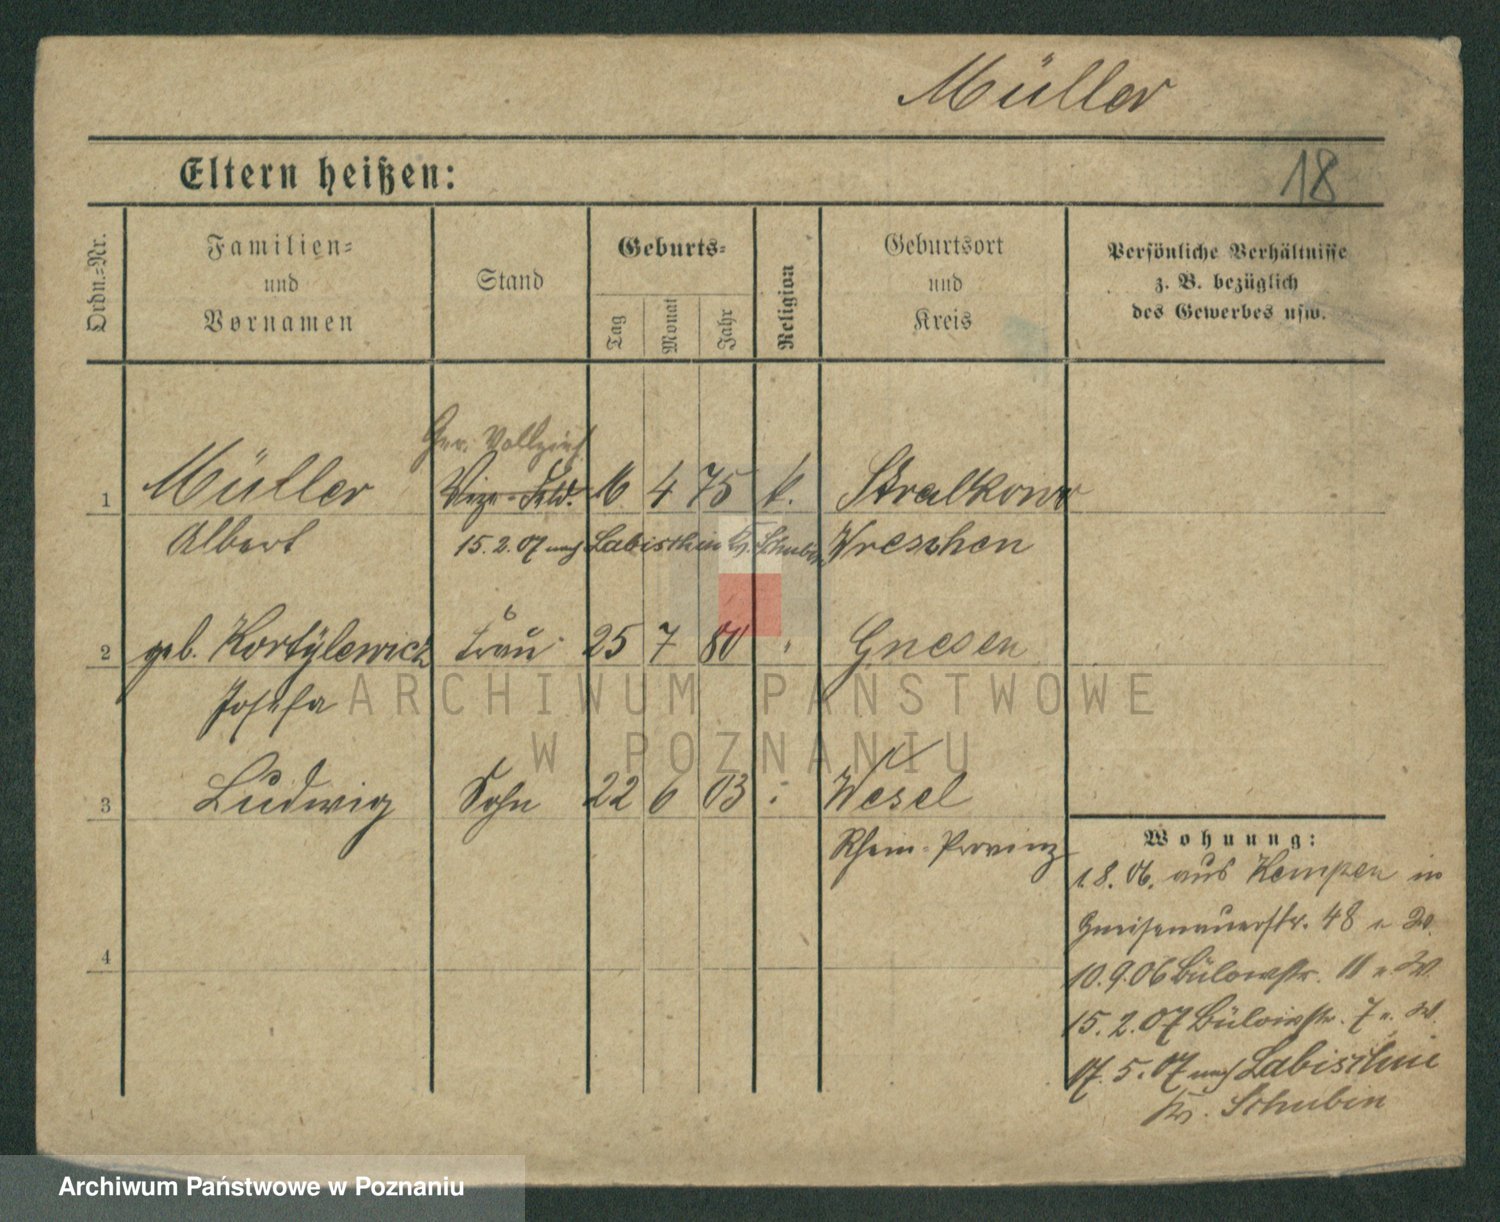 Müller
Eltern heißen:
18
Ordn.=Nr.
Familien=
und
Vornamen
Stand
Geburts=
Tag
Monat
Jahr
Religion
Geburtsort
und
Kreis
Persönliche Verhältnisse
z. B. bezüglich
des Gewerbes usw.
Ger. Vollzieh
1 Müller Vize-Feld. 16 4 75 k. Stralkowo
Albert 15.2.07 nach Labischin Kr. Schubin Wreschen
2 geb. Kortylewicz Frau 25 7 80 " Gnesen
Josefa
ARCHIWUM PAŃSTWOWE
W POZNANIU
3 Ludwig Sohn 22 6 03 : Wesel
Rhein-Provinz
4
Wohnung:
1.8.06. aus Kempen in
Gneisenauerstr. 48
10.9.06 Bülowstr. 11
15.2.07 Bülowstr. 7
17.5.07 nach Labischin
Kr. Schubin
Archiwum Państwowe w Poznaniu